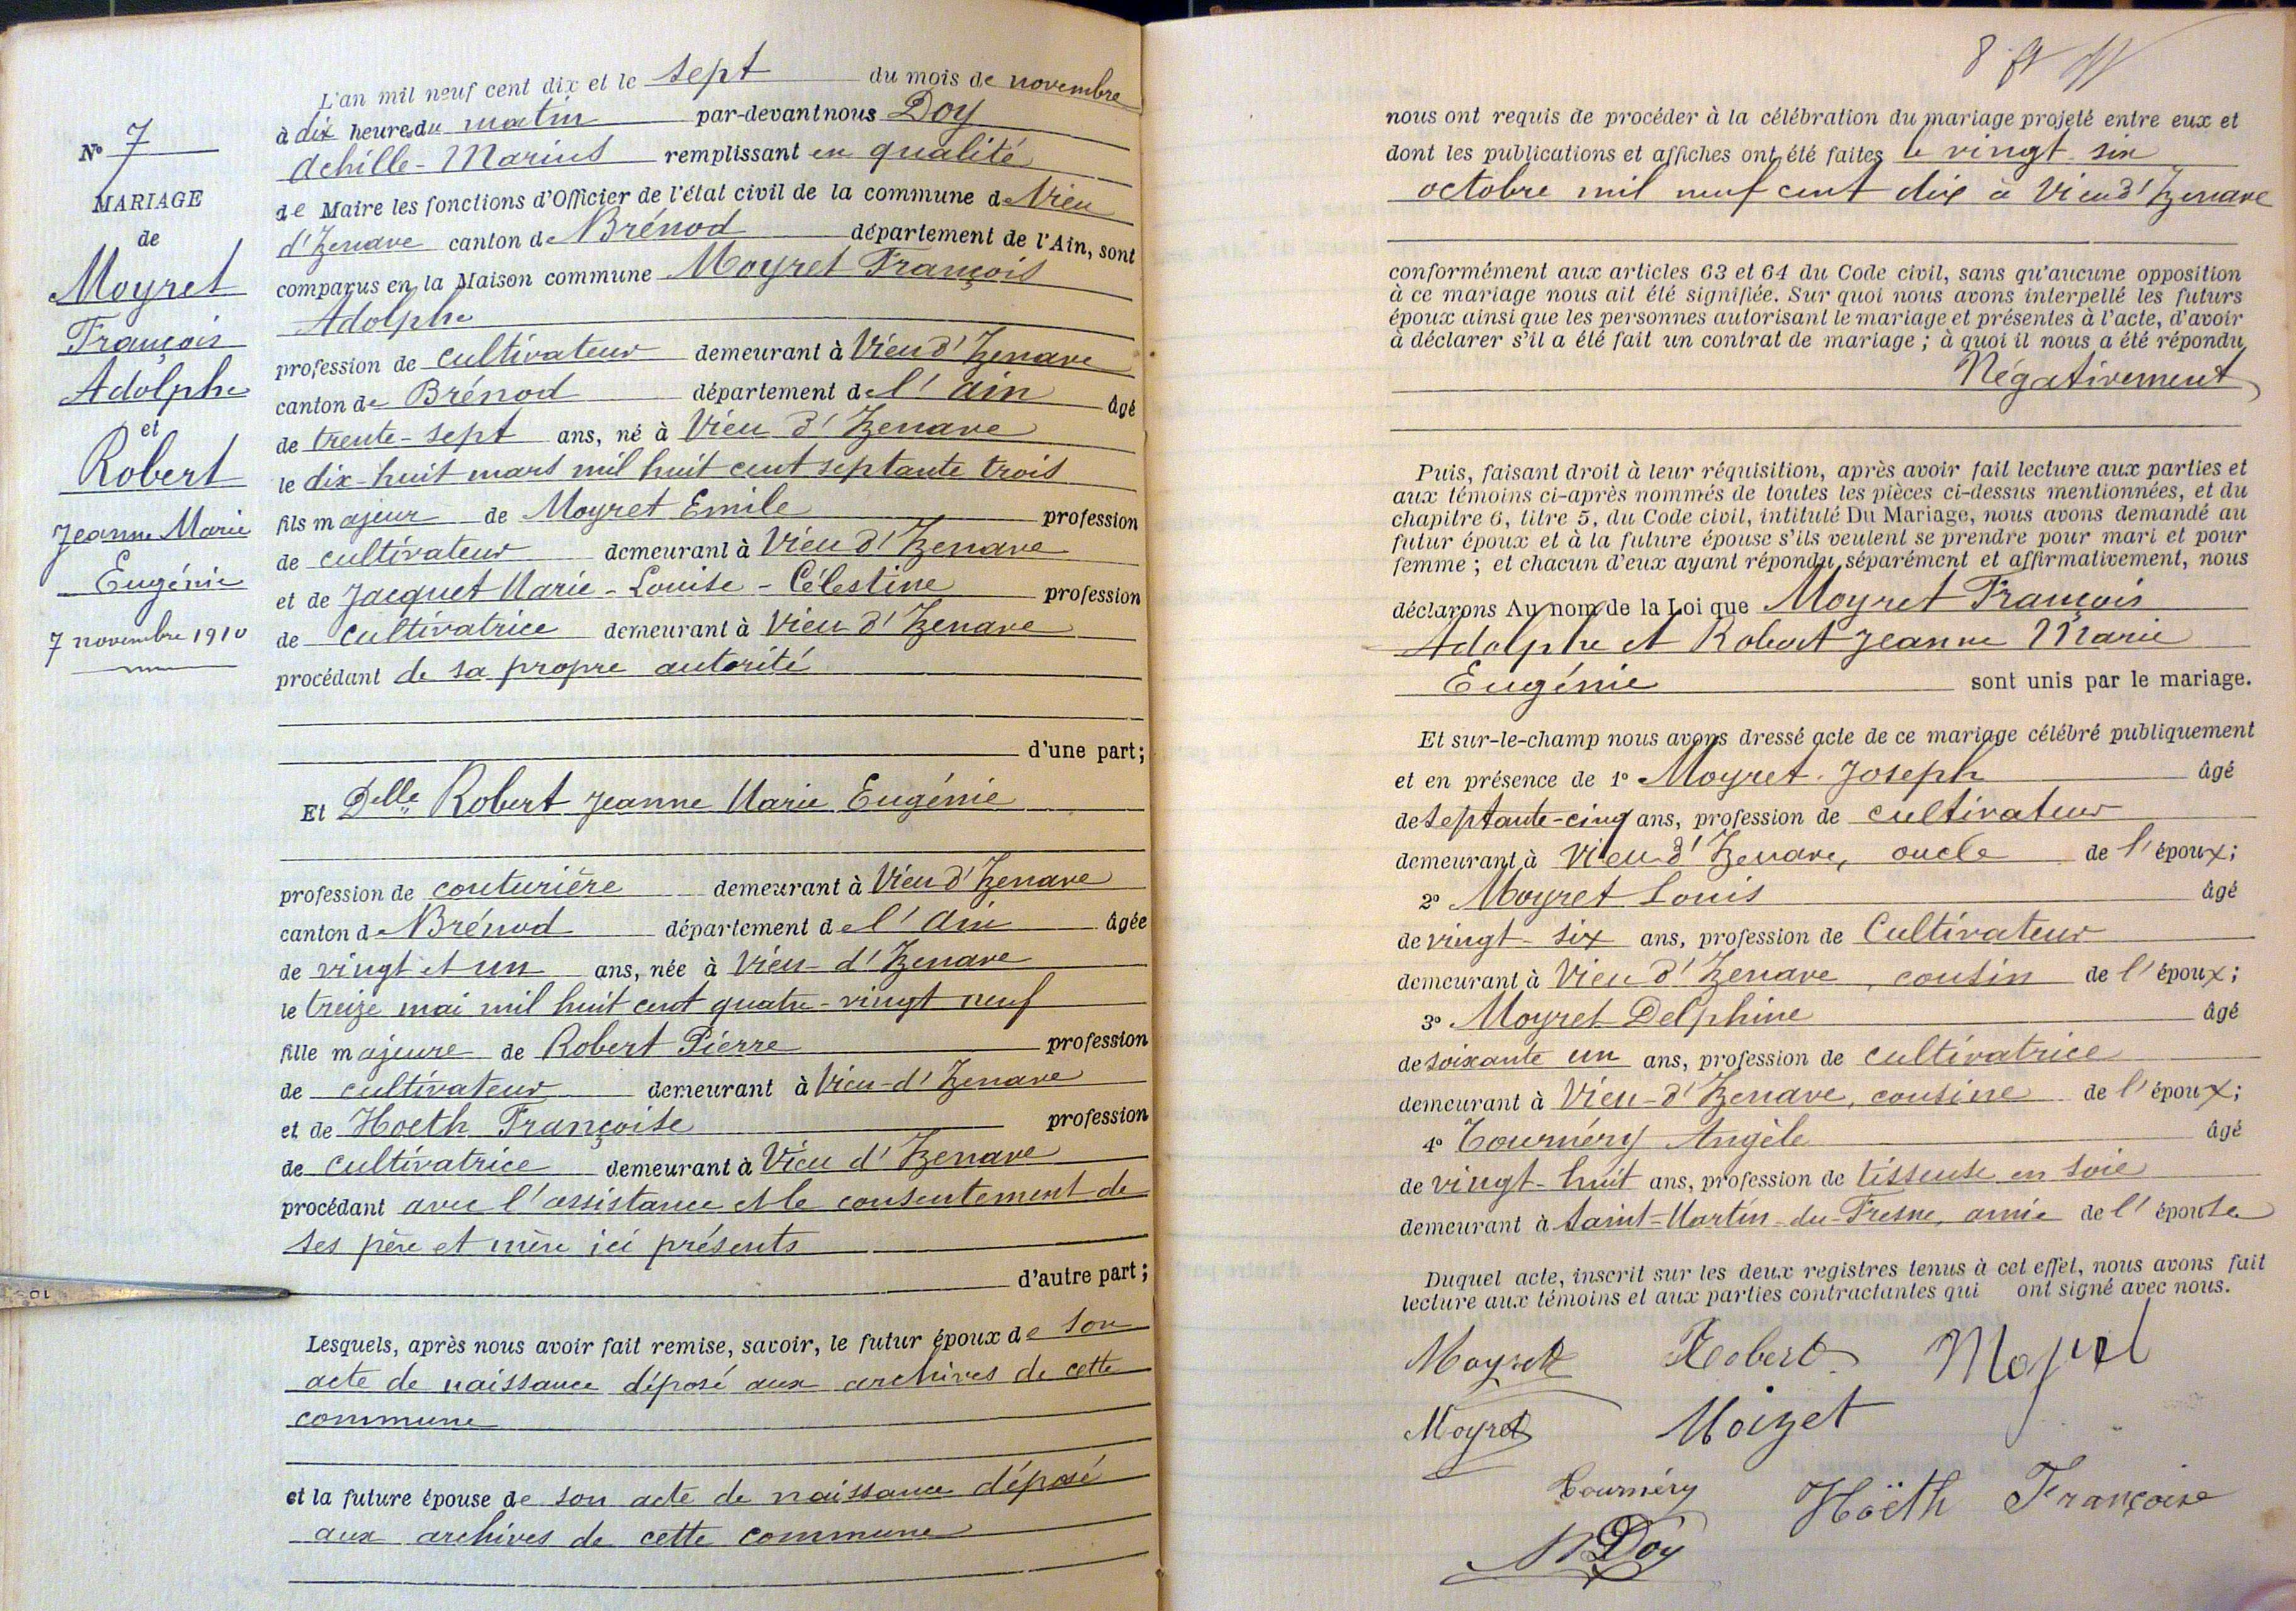 N° 7
MARIAGE
de
Moyret
François
Adolphe
et
Robert
Jeanne Marie
Eugénie
7 novembre 1910
L'an mil neuf cent dix et le sept du mois de novembre
à dix heures du matin par-devant nous Doy
Achille-Marius remplissant en qualité
de Maire les fonctions d'Officier de l'état civil de la commune de Vieu
d'Izenave canton de Brénod département de l'Ain, sont
comparus en la Maison commune Moyret François
Adolphe
profession de cultivateur demeurant à Vieu d'Izenave
canton de Brénod département de l'Ain âgé
de trente-sept ans, né à Vieu d'Izenave
le dix-huit mars mil huit cent septante trois
fils majeur de Moyret Emile profession
de cultivateur demeurant à Vieu d'Izenave
et de Jacquet Marie-Louise-Célestine profession
de cultivatrice demeurant à Vieu d'Izenave
procédant de sa propre autorité
d'une part;
Et Delle Robert Jeanne Marie Eugénie
profession de couturière demeurant à Vieu d'Izenave
canton de Brénod département de l'Ain âgée
de vingt et un ans, née à Vieu-d'Izenave
le treize mai mil huit cent quatre-vingt neuf
fille majeure de Robert Pierre profession
de cultivateur demeurant à Vieu-d'Izenave
et de Hoeth Françoise profession
de cultivatrice demeurant à Vieu d'Izenave
procédant avec l'assistance et le consentement de
ses père et mère ici présents
d'autre part;
Lesquels, après nous avoir fait remise, savoir, le futur époux de son
acte de naissance déposé aux archives de cette
commune
et la future épouse de son acte de naissance déposé
aux archives de cette commune
10
8
nous ont requis de procéder à la célébration du mariage projeté entre eux et
dont les publications et affiches ont été faites le vingt-six
octobre mil neuf cent dix à Vieu d'Izenave
conformément aux articles 63 et 64 du Code civil, sans qu'aucune opposition
à ce mariage nous ait été signifiée. Sur quoi nous avons interpellé les futurs
époux ainsi que les personnes autorisant le mariage et présentes à l'acte, d'avoir
à déclarer s'il a été fait un contrat de mariage; à quoi il nous a été répondu
Négativement
Puis, faisant droit à leur réquisition, après avoir fait lecture aux parties et
aux témoins ci-après nommés de toutes les pièces ci-dessus mentionnées, et du
chapitre 6, titre 5, du Code civil, intitulé Du Mariage, nous avons demandé au
futur époux et à la future épouse s'ils veulent se prendre pour mari et pour
femme; et chacun d'eux ayant répondu séparément et affirmativement, nous
déclarons Au nom de la Loi que Moyret François
Adolphe et Robert Jeanne Marie
Eugénie sont unis par le mariage.
Et sur-le-champ nous avons dressé acte de ce mariage célébré publiquement
et en présence de 1° Moyret Joseph âgé
de septante-cinq ans, profession de cultivateur
demeurant à Vieu d'Izenave, oncle de l'époux;
2° Moyret Louis âgé
de vingt-six ans, profession de Cultivateur
demeurant à Vieu d'Izenave, cousin de l'époux;
3° Moyret Delphine âgé
de soixante un ans, profession de cultivatrice
demeurant à Vieu-d'Izenave, cousine de l'époux;
4° Tournéry Angèle âgé
de vingt-huit ans, profession de tisseuse en soie
demeurant à Saint-Martin-du-Fresne, amie de l'épouse
Duquel acte, inscrit sur les deux registres tenus à cet effet, nous avons fait
lecture aux témoins et aux parties contractantes qui ont signé avec nous.
Moyret Robert Moyret
Moyret Moizet
Tournéry Hoëth Françoise
Doy